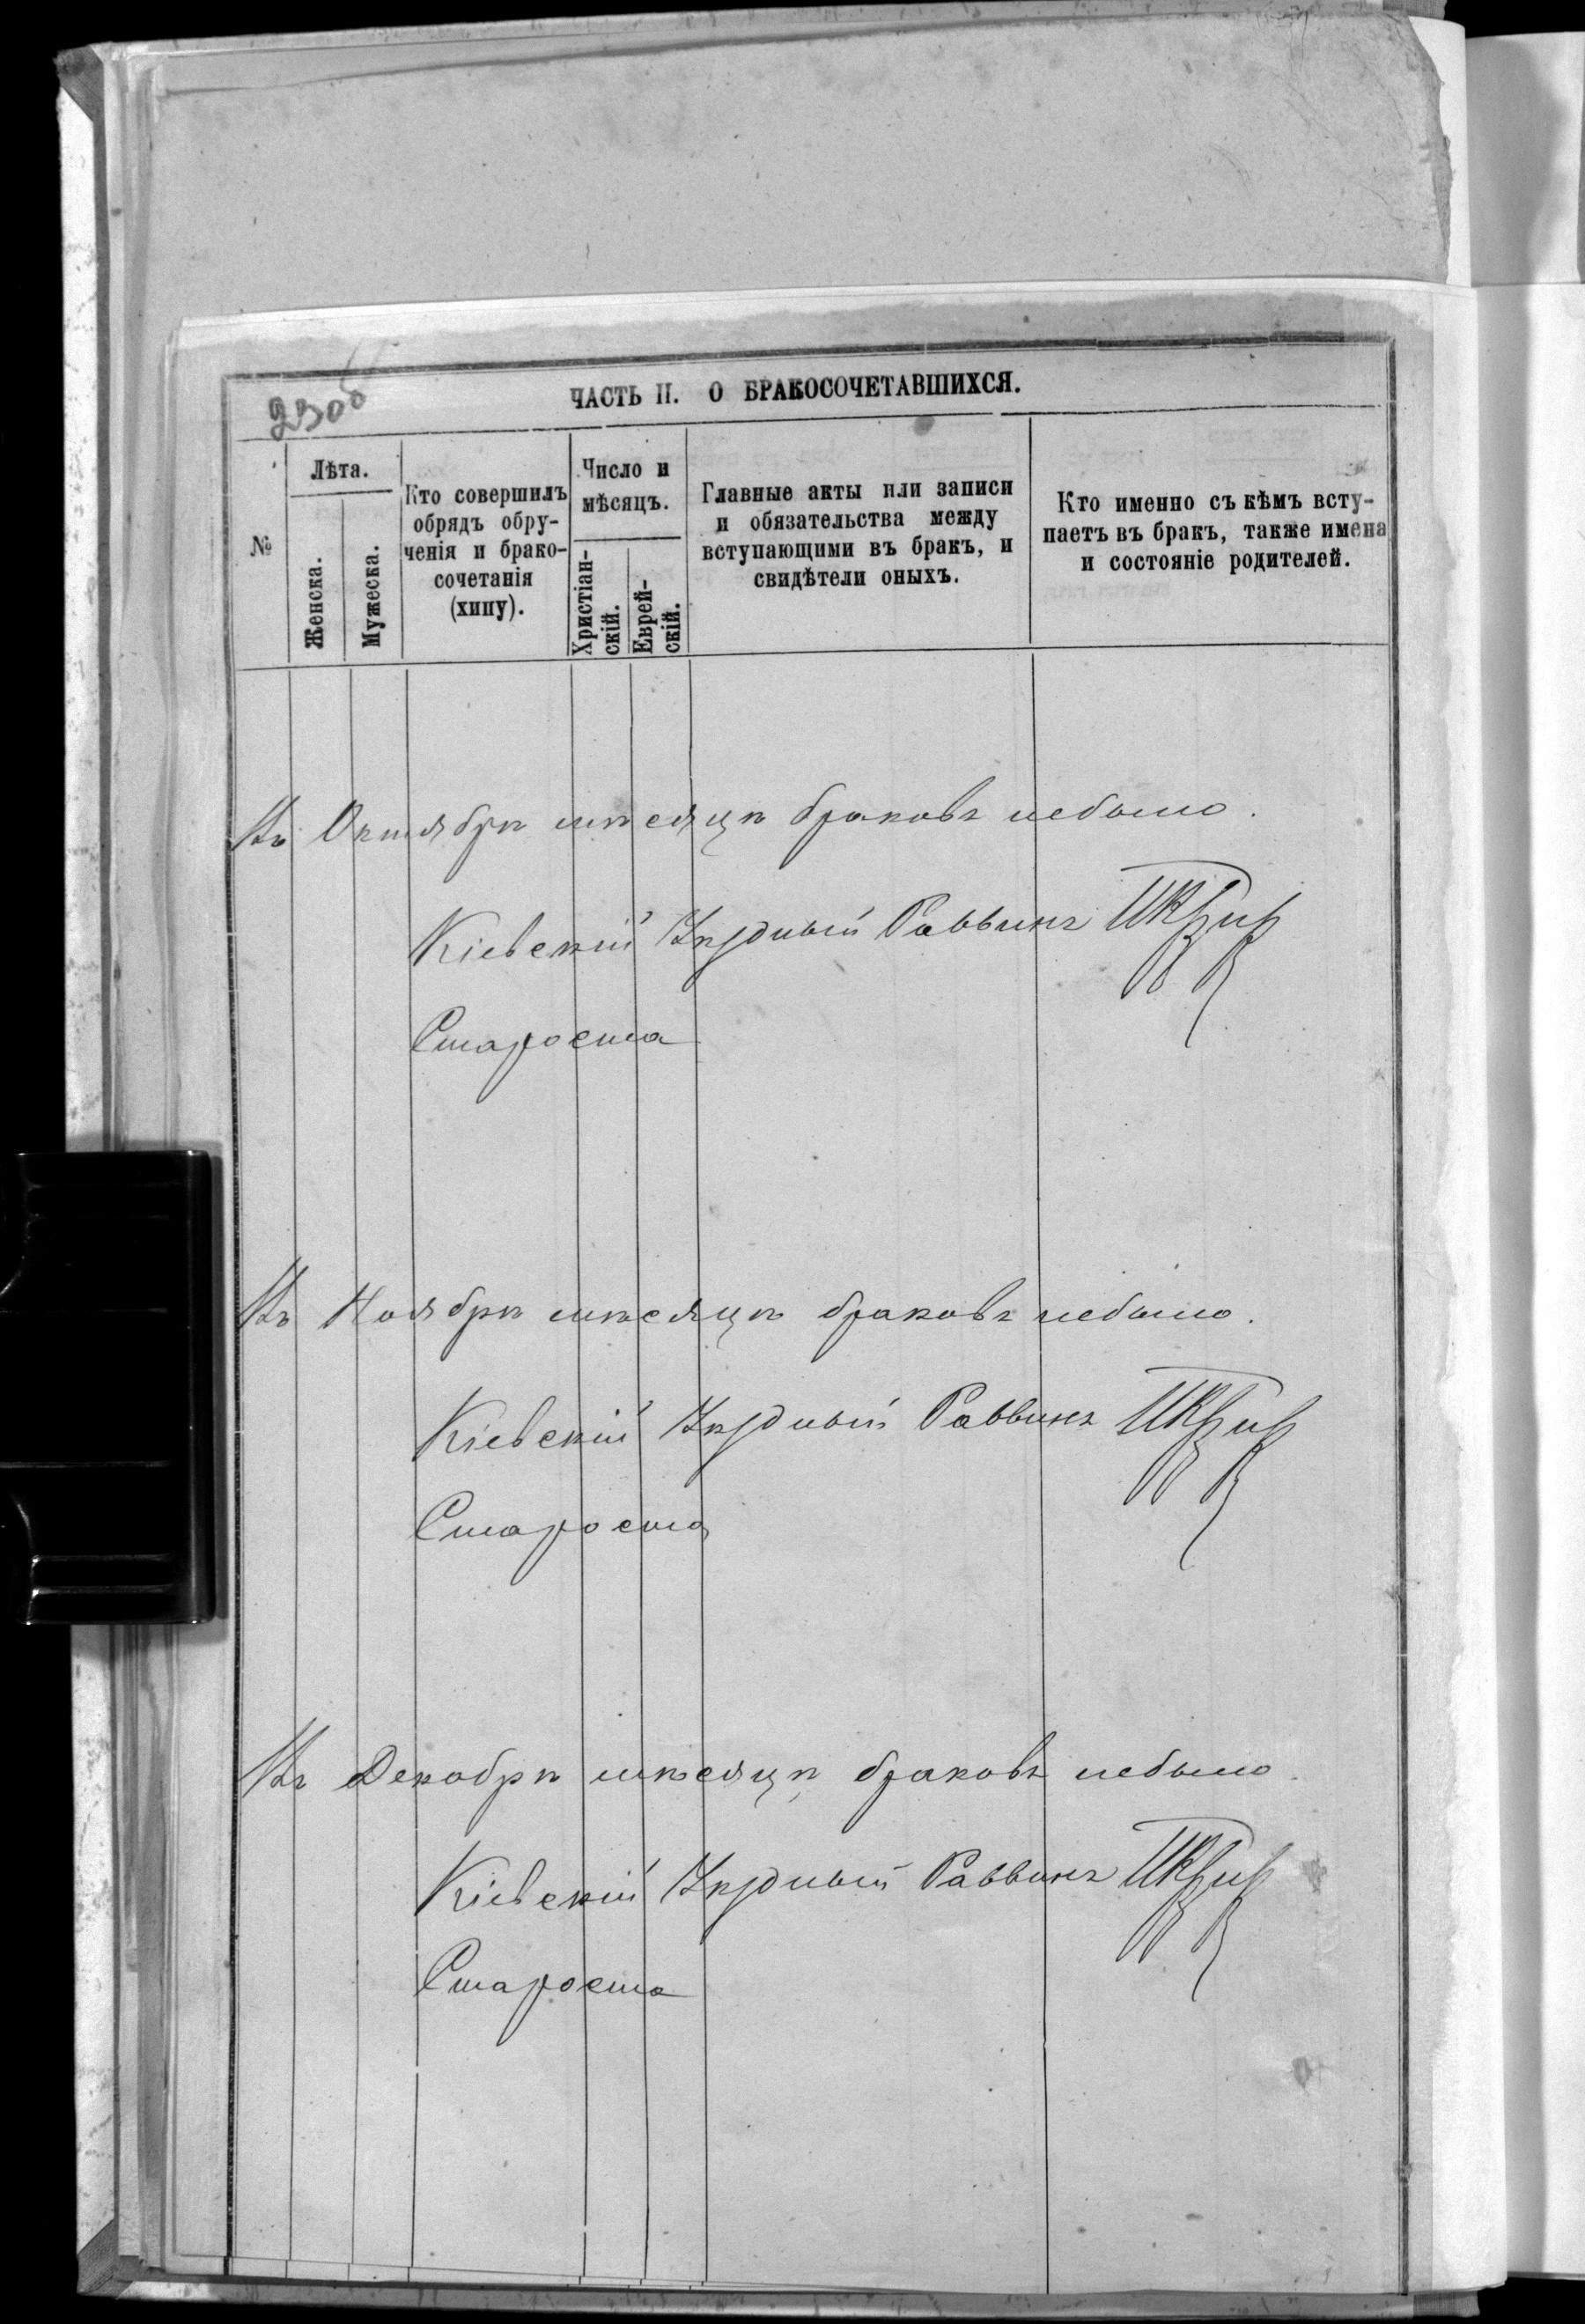 23об
ЧАСТЬ II. О БРАКОСОЧЕТАВШИХСЯ.
№
Лѣта.
Женска.
Мужеска.
Кто совершилъ
обрядъ обру-
ченія и брако-
сочетанія
(хипу).
Число и
мѣсяцъ.
Христіан-
скій.
Еврей-
скій.
Главные акты или записи
и обязательства между
вступающими въ бракъ, и
свидѣтели оныхъ.
Кто именно съ кѣмъ всту-
паетъ въ бракъ, также имена
и состояніе родителей.
Въ Октябрѣ мѣсяцѣ браковъ небыло.
Кіевскій Уѣздный Раввинъ
Староста
Въ Ноябрѣ мѣсяцѣ браковъ небыло.
Кіевскій Уѣздный Раввинъ
Староста
Въ Декабрѣ мѣсяцѣ браковъ небыло.
Кіевскій Уѣздный Раввинъ
Староста